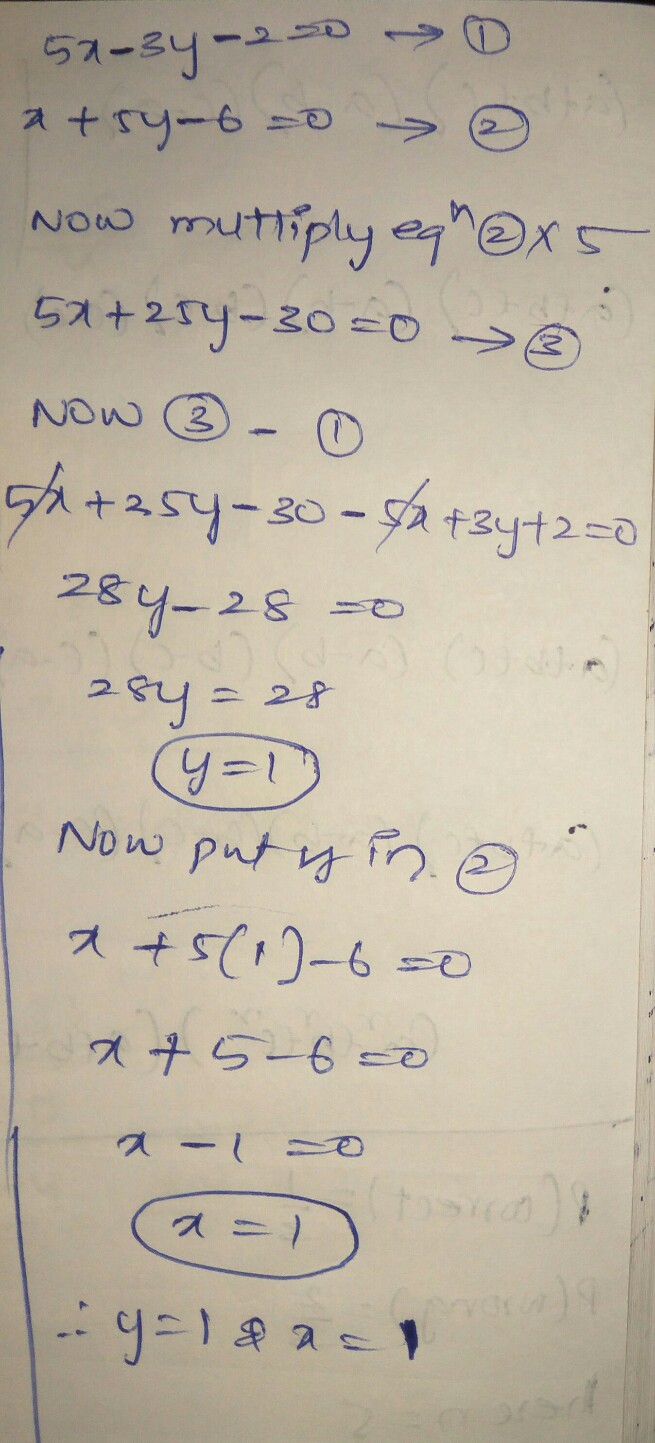 5x-3y-2=0 → ①
x+5y-6=0 → ②
Now multiply eqⁿ ②×5
5x+25y-30=0 → ③
Now ③ - ①
5x+25y-30-5x+3y+2=0
28y-28=0
28y=28
y=1
Now put y in ②
x+5(1)-6=0
x+5-6=0
x-1=0
x=1
∴ y=1 & x=1